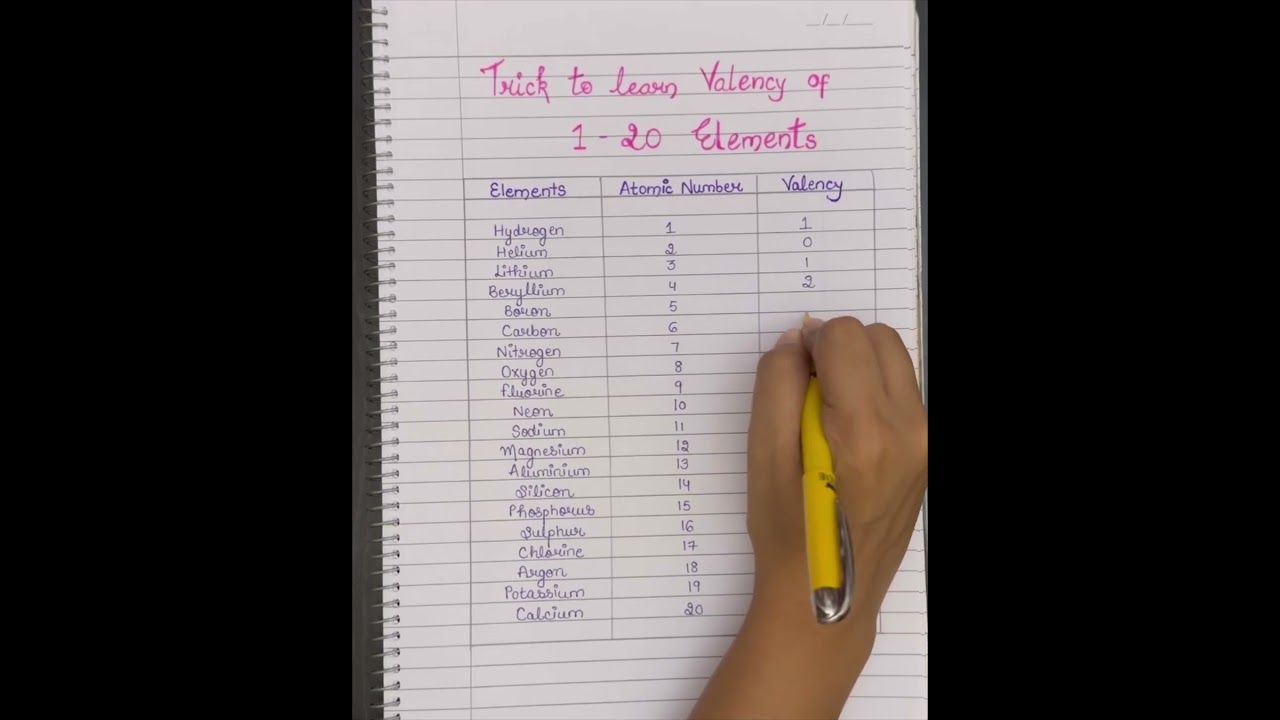 __/__/____
Trick to learn Valency of
1 - 20 Elements
Elements Atomic Number Valency
Hydrogen 1 1
Helium 2 0
Lithium 3 1
Beryllium 4 2
Boron 5
Carbon 6
Nitrogen 7
Oxygen 8
fluorine 9
Neon 10
Sodium 11
Magnesium 12
Aluminium 13
Silicon 14
Phosphorus 15
Sulphur 16
Chlorine 17
Argon 18
Potassium 19
Calcium 20